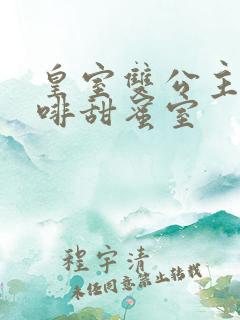 皇室雙公主
啡甜蜜室
程宇清
未经同意禁止转载